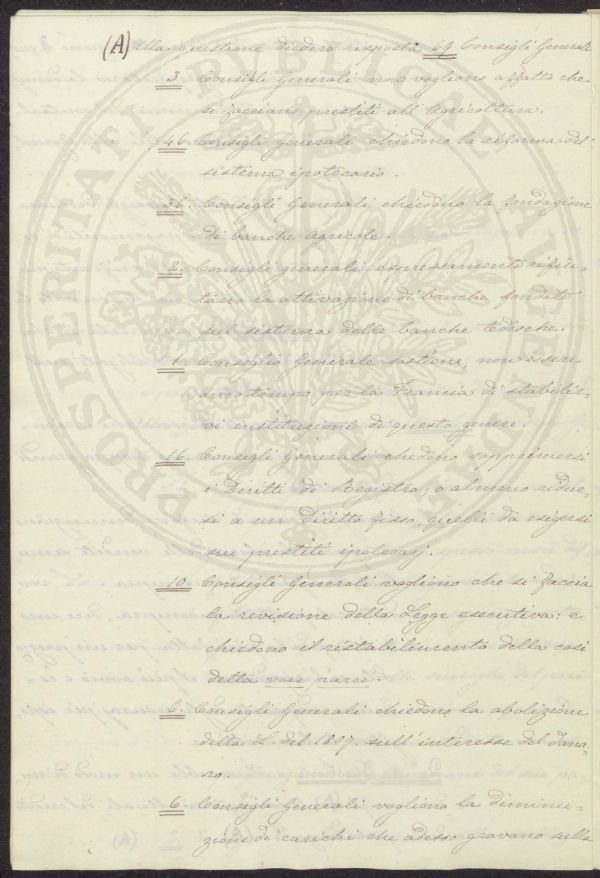 (A) Alla questione diedero risposta 69 Consigli Generali
3 Consigli Generali non vogliono affatto che
si facciano prestiti all'Agricoltura.
46. Consigli Generali chiedono la riforma del
sistema ipotecario.
36. Consigli Generali chiedono la fondazione
di banche Agricole.
2. Consigli generali espressamente rifiu-
tano la attivazione di banche fondate
sul sistema delle banche tedesche.
1. Consiglio Generale sostiene, non essere
anco tempo per la Francia di stabilir-
vi instituzioni di questo genere.
16. Consigli Generali chiedono sopprimersi
i Diritti di Registro; o almeno ridur-
si a un Diritto fisso, quelli da esigersi
sui prestiti ipotecarj.
10. Consigli Generali vogliono che si faccia
la revisione della Legge esecutiva: e
chiedono il ristabilimento della così
detta voie parée
6. Consigli Generali chiedono la abolizione
della L. del 1807. sull'interesse del dana-
ro.
6. Consigli Generali vogliono la diminu-
zione di carichi che adesso gravano sulla
PROSPERITATI PUBLICAE AUGENDAE